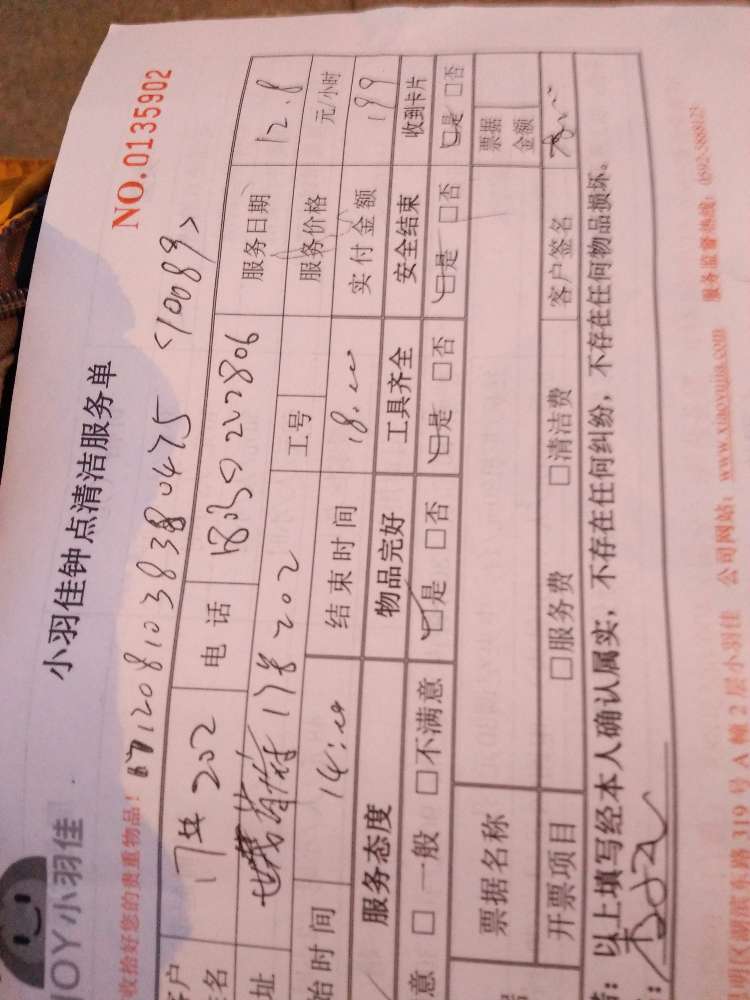 JOY小羽佳
小羽佳钟点清洁服务单
NO.0135902
收拾好您的贵重物品！ 12081038380475 <10089>
客户姓名 17# 202 电话 服务日期 12.8
址 17# 202 工号 服务价格 元/小时
始时间 14:00 结束时间 18:00 实付金额 199
服务态度 物品完好 工具齐全 安全结束 收到卡片
意 □一般 □不满意 □是 □否 □是 □否 □是 □否 □是 □否
票据名称 票据金额
开票项目 □服务费 □清洁费 客户签名
以上填写经本人确认属实，不存在任何纠纷，不存在任何物品损坏。
明区湖滨东路 319 号 A 幢 2 层小羽佳 公司网站：www.xiaoyujia.com 服务监督热线：0592-5888123